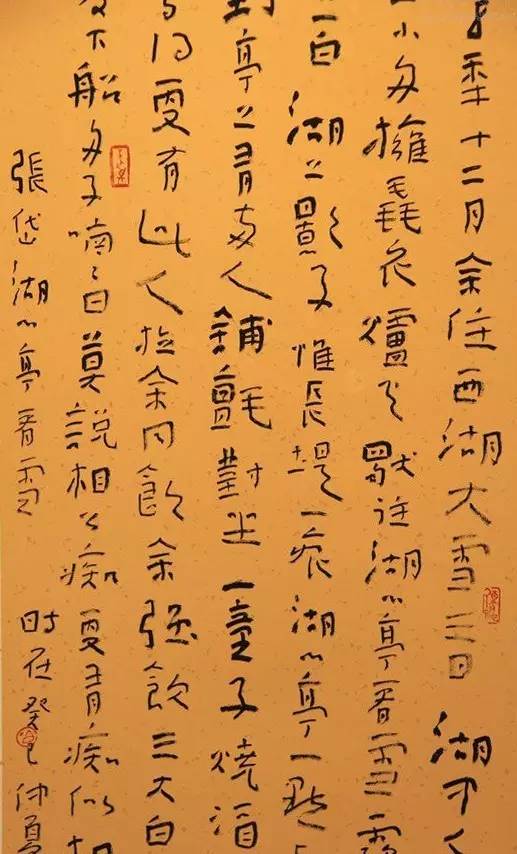 年十二月余住西湖大雪三日湖中人
一小舟擁毳衣爐火獨往湖心亭看雪霧
一白湖上影子惟長堤一痕湖心亭一點
到亭上有兩人鋪氈對坐一童子燒酒
焉得更有此人拉余同飲余強飲三大白
及下船舟子喃喃曰莫說相公痴更有痴似相
張岱湖心亭看雪 時在癸巳仲夏